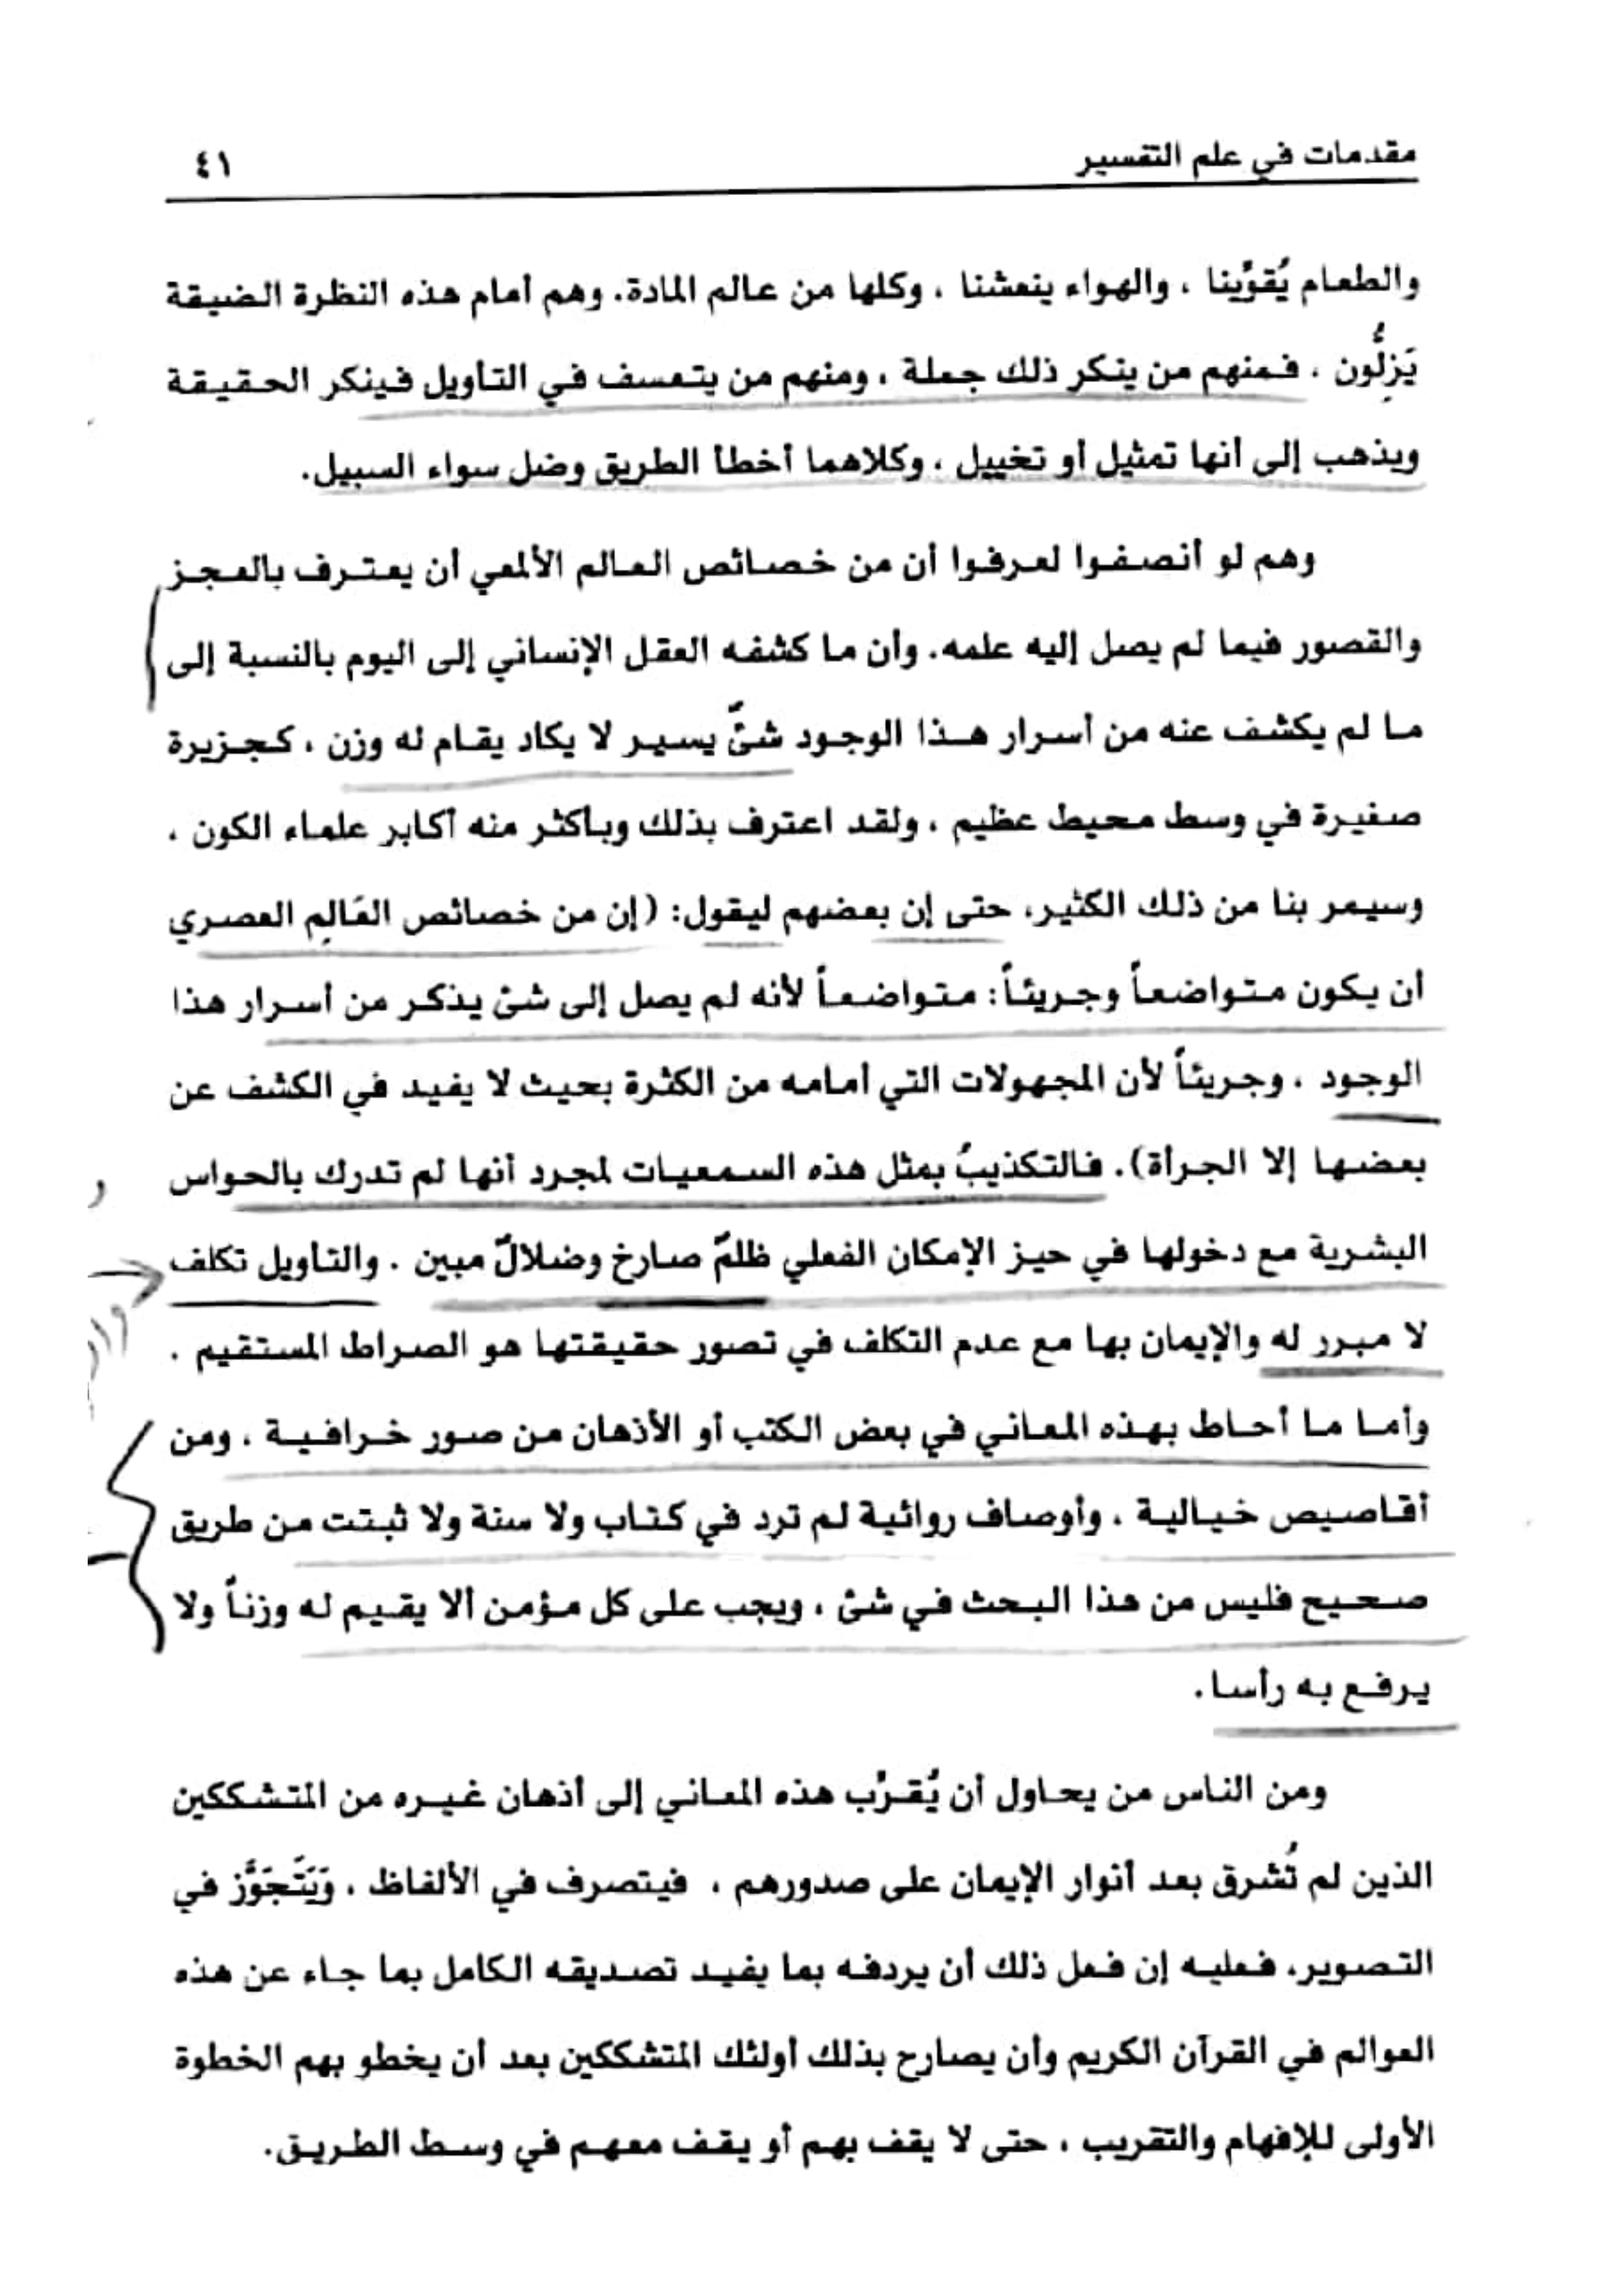 مقدمات في علم التفسير
٤١
والطعام يُقوِّينا ، والهواء ينعشنا ، وكلها من عالم المادة. وهم أمام هذه النظرة الضيقة
يَزِلُّون ، فمنهم من ينكر ذلك جملة ، ومنهم من يتعسف في التأويل فينكر الحقيقة
ويذهب إلى أنها تمثيل أو تخييل ، وكلاهما أخطأ الطريق وضل سواء السبيل.
وهم لو أنصفوا لعرفوا أن من خصائص العالم الألمعي أن يعترف بالعجز
والقصور فيما لم يصل إليه علمه. وأن ما كشفه العقل الإنساني إلى اليوم بالنسبة إلى
ما لم يكشف عنه من أسرار هذا الوجود شئٌ يسير لا يكاد يقام له وزن ، كجزيرة
صغيرة في وسط محيط عظيم ، ولقد اعترف بذلك وبأكثر منه أكابر علماء الكون ،
وسيمر بنا من ذلك الكثير، حتى إن بعضهم ليقول: (إن من خصائص العَالِم العصري
أن يكون متواضعاً وجريئاً: متواضعاً لأنه لم يصل إلى شئ يذكر من أسرار هذا
الوجود ، وجريئاً لأن المجهولات التي أمامه من الكثرة بحيث لا يفيد في الكشف عن
بعضها إلا الجرأة). فالتكذيبُ بمثل هذه السمعيات لمجرد أنها لم تدرك بالحواس
البشرية مع دخولها في حيز الإمكان الفعلي ظلمٌ صارخ وضلالٌ مبين . والتأويل تكلف
لا مبرر له والإيمان بها مع عدم التكلف في تصور حقيقتها هو الصراط المستقيم .
وأما ما أحاط بهذه المعاني في بعض الكتب أو الأذهان من صور خرافية ، ومن
أقاصيص خيالية ، وأوصاف روائية لم ترد في كتاب ولا سنة ولا ثبتت من طريق
صحيح فليس من هذا البحث في شئ ، ويجب على كل مؤمن ألا يقيم له وزناً ولا
يرفع به رأسا.
ومن الناس من يحاول أن يُقرِّب هذه المعاني إلى أذهان غيره من المتشككين
الذين لم تُشرق بعد أنوار الإيمان على صدورهم ، فيتصرف في الألفاظ ، وَيَتَجَوَّز في
التصوير، فعليه إن فعل ذلك أن يردفه بما يفيد تصديقه الكامل بما جاء عن هذه
العوالم في القرآن الكريم وأن يصارح بذلك أولئك المتشككين بعد أن يخطو بهم الخطوة
الأولى للإفهام والتقريب ، حتى لا يقف بهم أو يقف معهم في وسط الطريق.